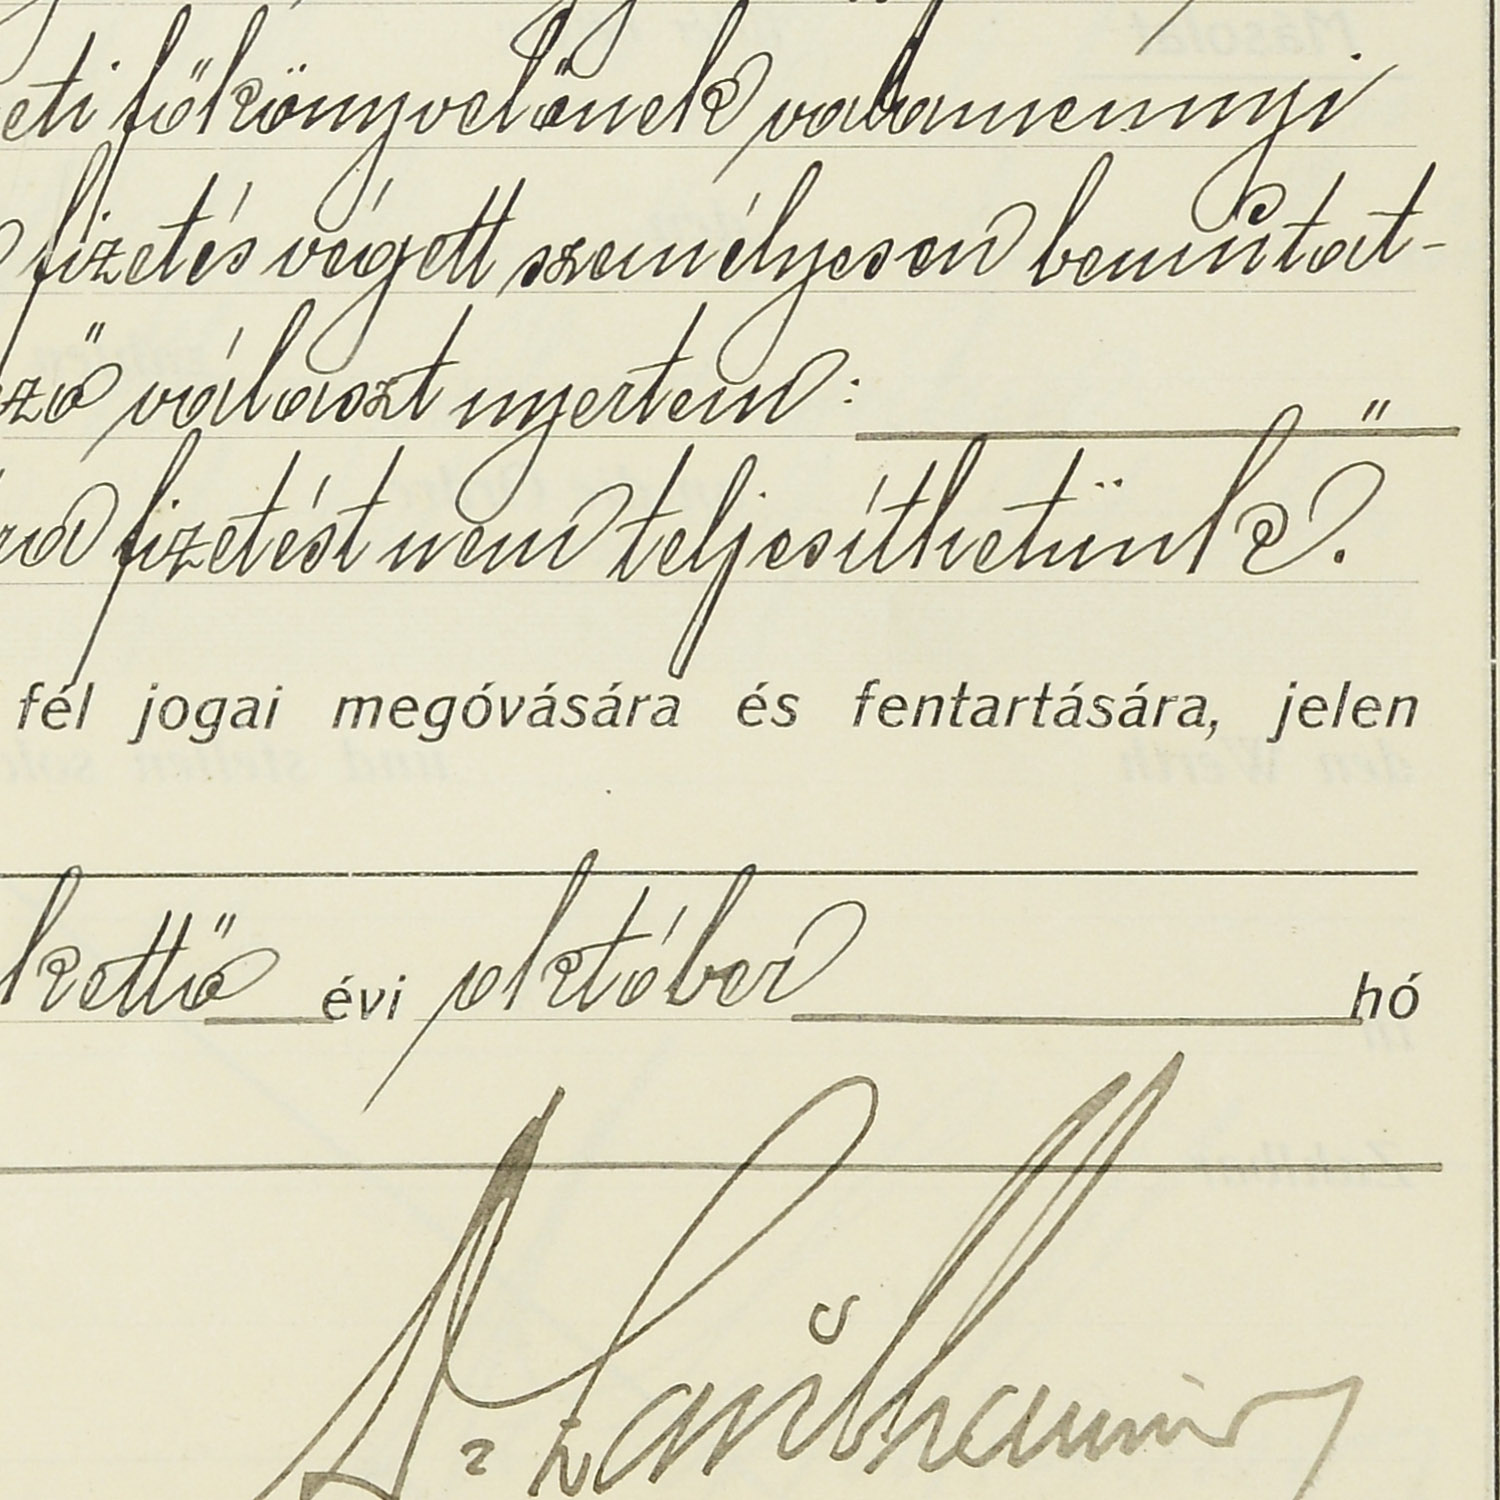 eti főkönyvelőnek valamennyi
fizetés végett személyesen bemutat-
ző választ nyertem:
fizetést nem teljesíthetünk.
fél jogai megóvására és fentartására, jelen
kettő évi október hó